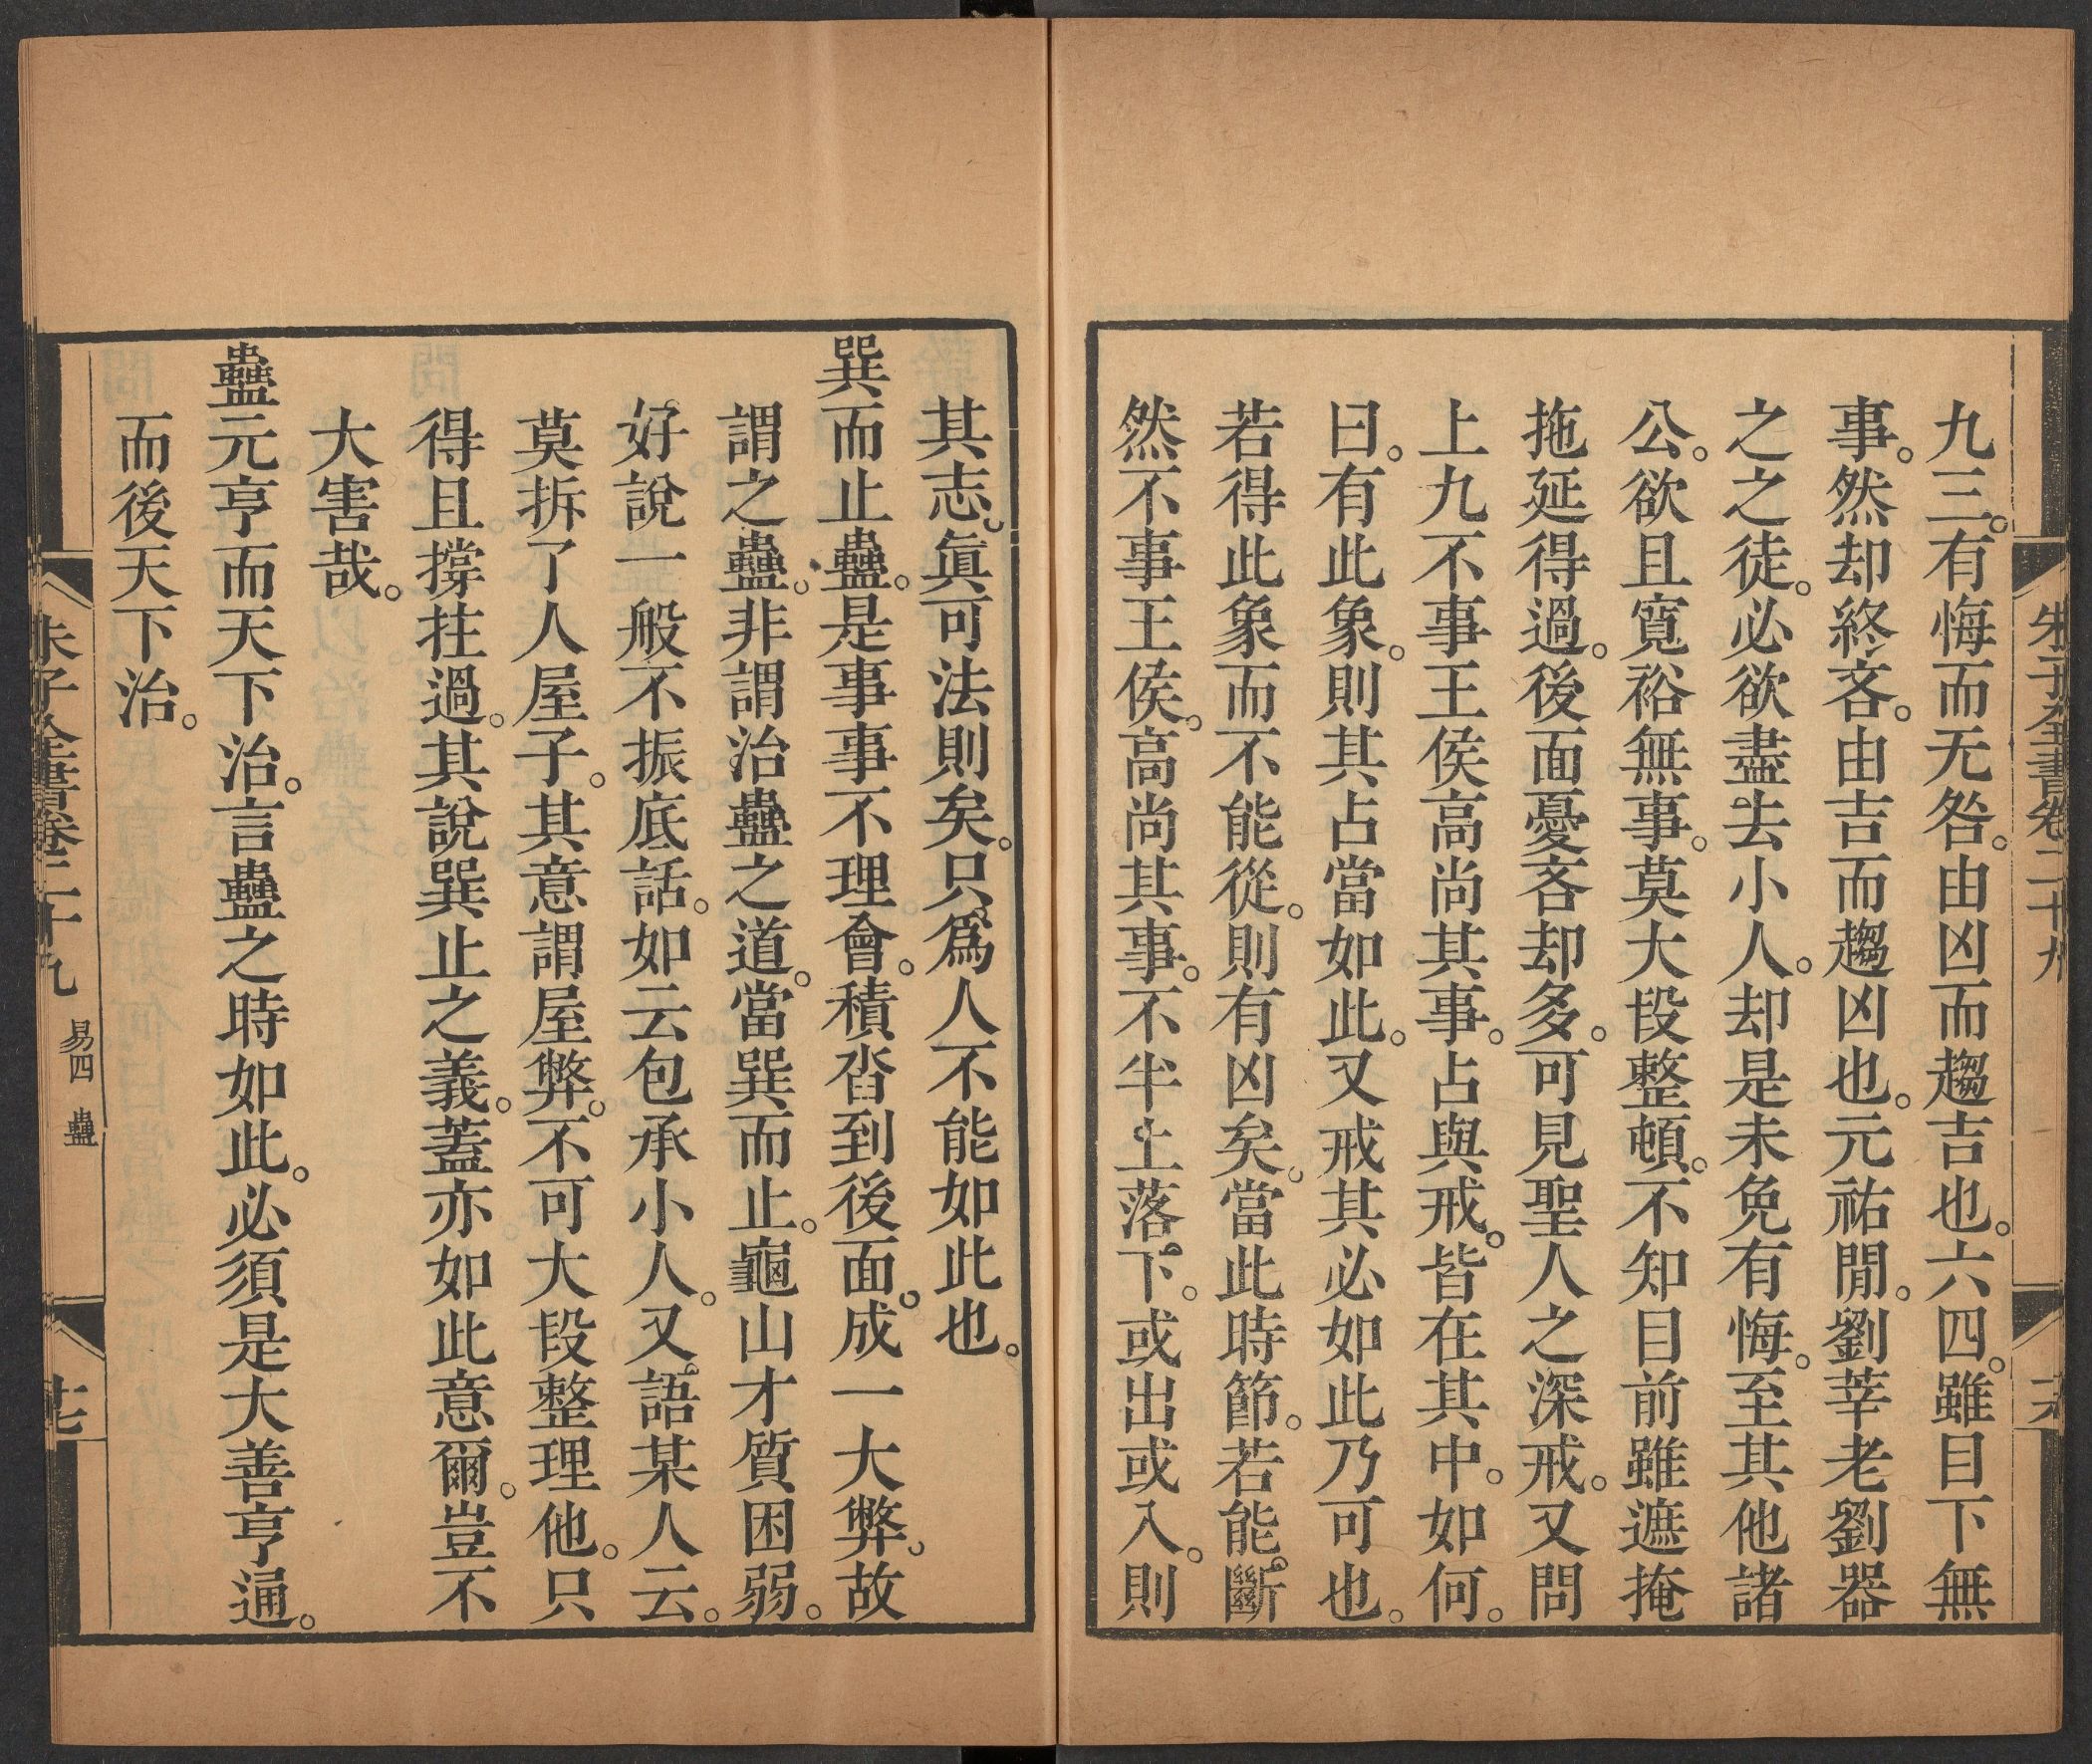 九三。有悔而无咎。由凶而趨吉也。六四。雖目下無
事。然却終吝。由吉而趨凶也。元祐間。劉莘老劉器
之之徒。必欲盡去小人。却是未免有悔。至其他諸
公。欲且寬裕無事。莫大段整頓。不知目前雖遮掩
拖延得過。後面憂吝却多。可見聖人之深戒。又問
上九不事王侯高尚其事。占與戒。皆在其中。如何。
曰。有此象。則其占當如此。又戒其必如此乃可也。
若得此象而不能從。則有凶矣。當此時節。若能斷
然不事王侯。高尚其事。不半上落下。或出或入。則
朱子全書卷二十九
其志。眞可法則矣。只爲人不能如此也。
巽而止蠱。是事事不理會。積沓到後面。成一大弊。故
謂之蠱。非謂治蠱之道。當巽而止。龜山才質困弱。
好說一般不振底話。如云包承小人。又語某人云。
莫拆了人屋子。其意謂屋弊。不可大段整理他。只
得且撐拄過。其說巽止之義。蓋亦如此意爾。豈不
大害哉。
蠱元亨而天下治。言蠱之時如此。必須是大善亨通。
而後天下治。
朱子全書卷二十九 易四 蠱 十七